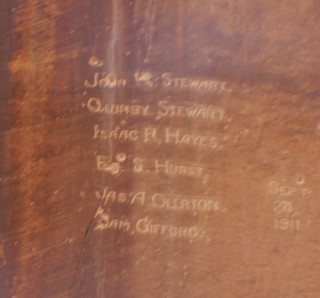 JOHN W. STEWART
QUINBY STEWART
ISAAC R. HAYES
ED S. HURST
JAS. A. OLLERTON
SAM GIFFORD
SEPT
28
1911